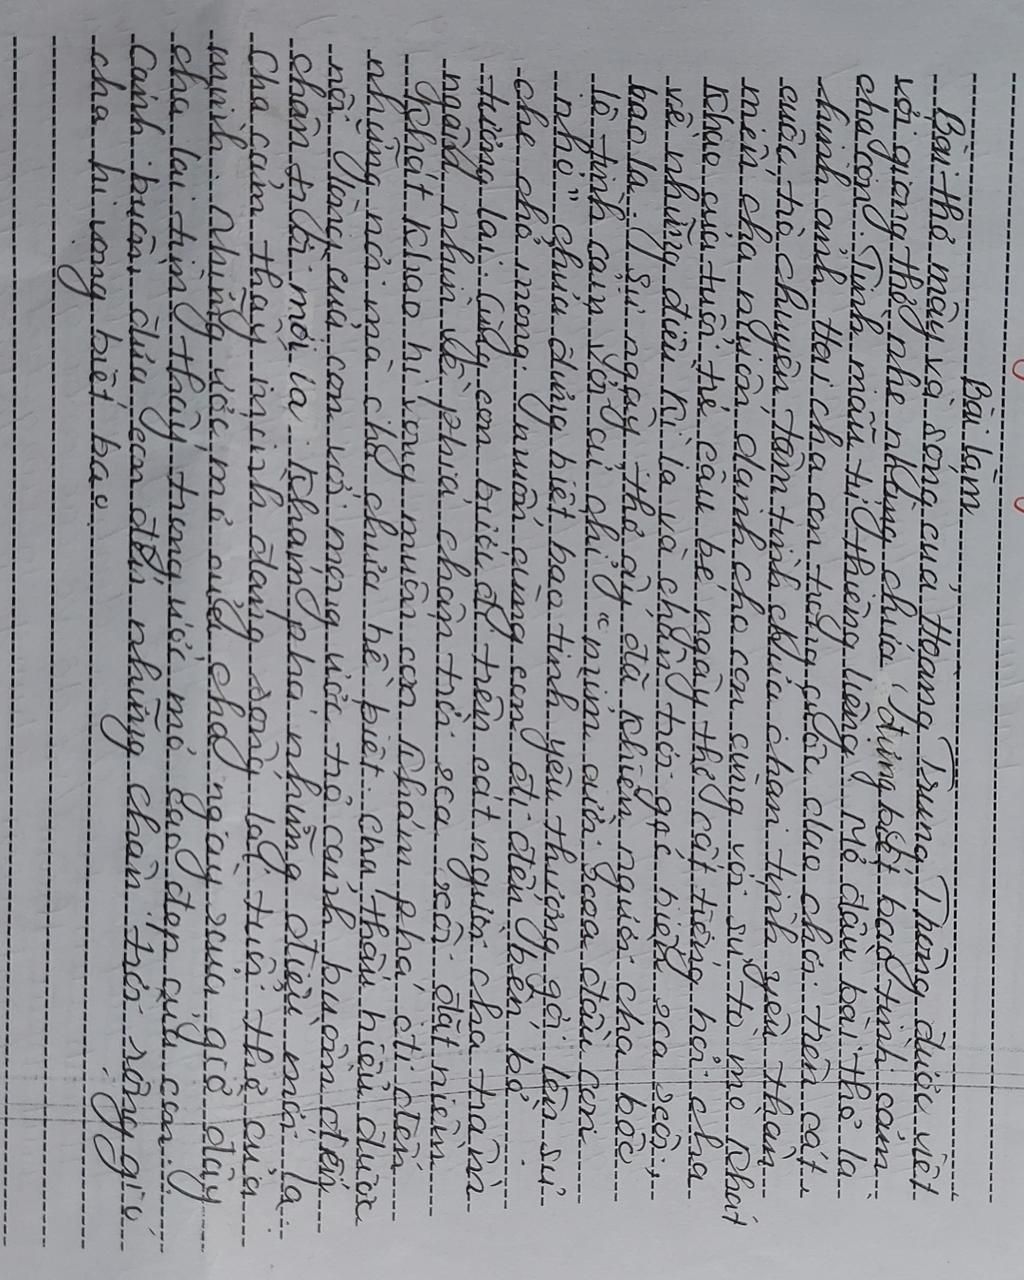 Bài làm
Bài thơ mây và sóng của Hoàng Trung Thông được viết
với giọng thơ nhẹ nhàng chứa đựng biết bao tình cảm
cha con. Tình mẫu tử thiêng liêng. Mở đầu bài thơ là
hình ảnh Hai cha con trong cuộc dạo chơi trên cát
cuộc trò chuyện tâm tình chứa chan tình yêu thân
mến cha muốn dành cho con cùng với sự tò mò khát
khao của tuổi trẻ cậu bé ngây thơ cất tiếng hỏi cha
về những điều kì lạ và chân trời góc biển xa xôi,
bao la. Sự ngây thơ ấy đã khiến người cha bộc
lộ tình cảm với cử chỉ "mỉm cười xoa đầu con
nhỏ" chứa đựng biết bao tình yêu thương gợi lên sự
che chở mong muốn cùng con đi đến bến bờ
tương lai. Cùng con bước đi trên cát người cha trầm
ngâm nhìn về phía chân trời xa xôi đặt niềm
khát khao hi vọng muốn con khám phá đi đến
những nơi mà cha chưa hề biết. cha thấu hiểu được
nỗi lòng của con với mong ước trỏ cánh buồm đến
chân trời mới lạ khám phá những điều mới lạ.
Cha cảm thấy mình đang sống lại tuổi thơ của
mình. Những ước mơ của cha ngày xưa, giờ đây
cha lại tìm thấy trong ước mơ cao đẹp của con.
Cánh buồm đưa con đến những chân trời rộng giúp
cha hi vọng biết bao.